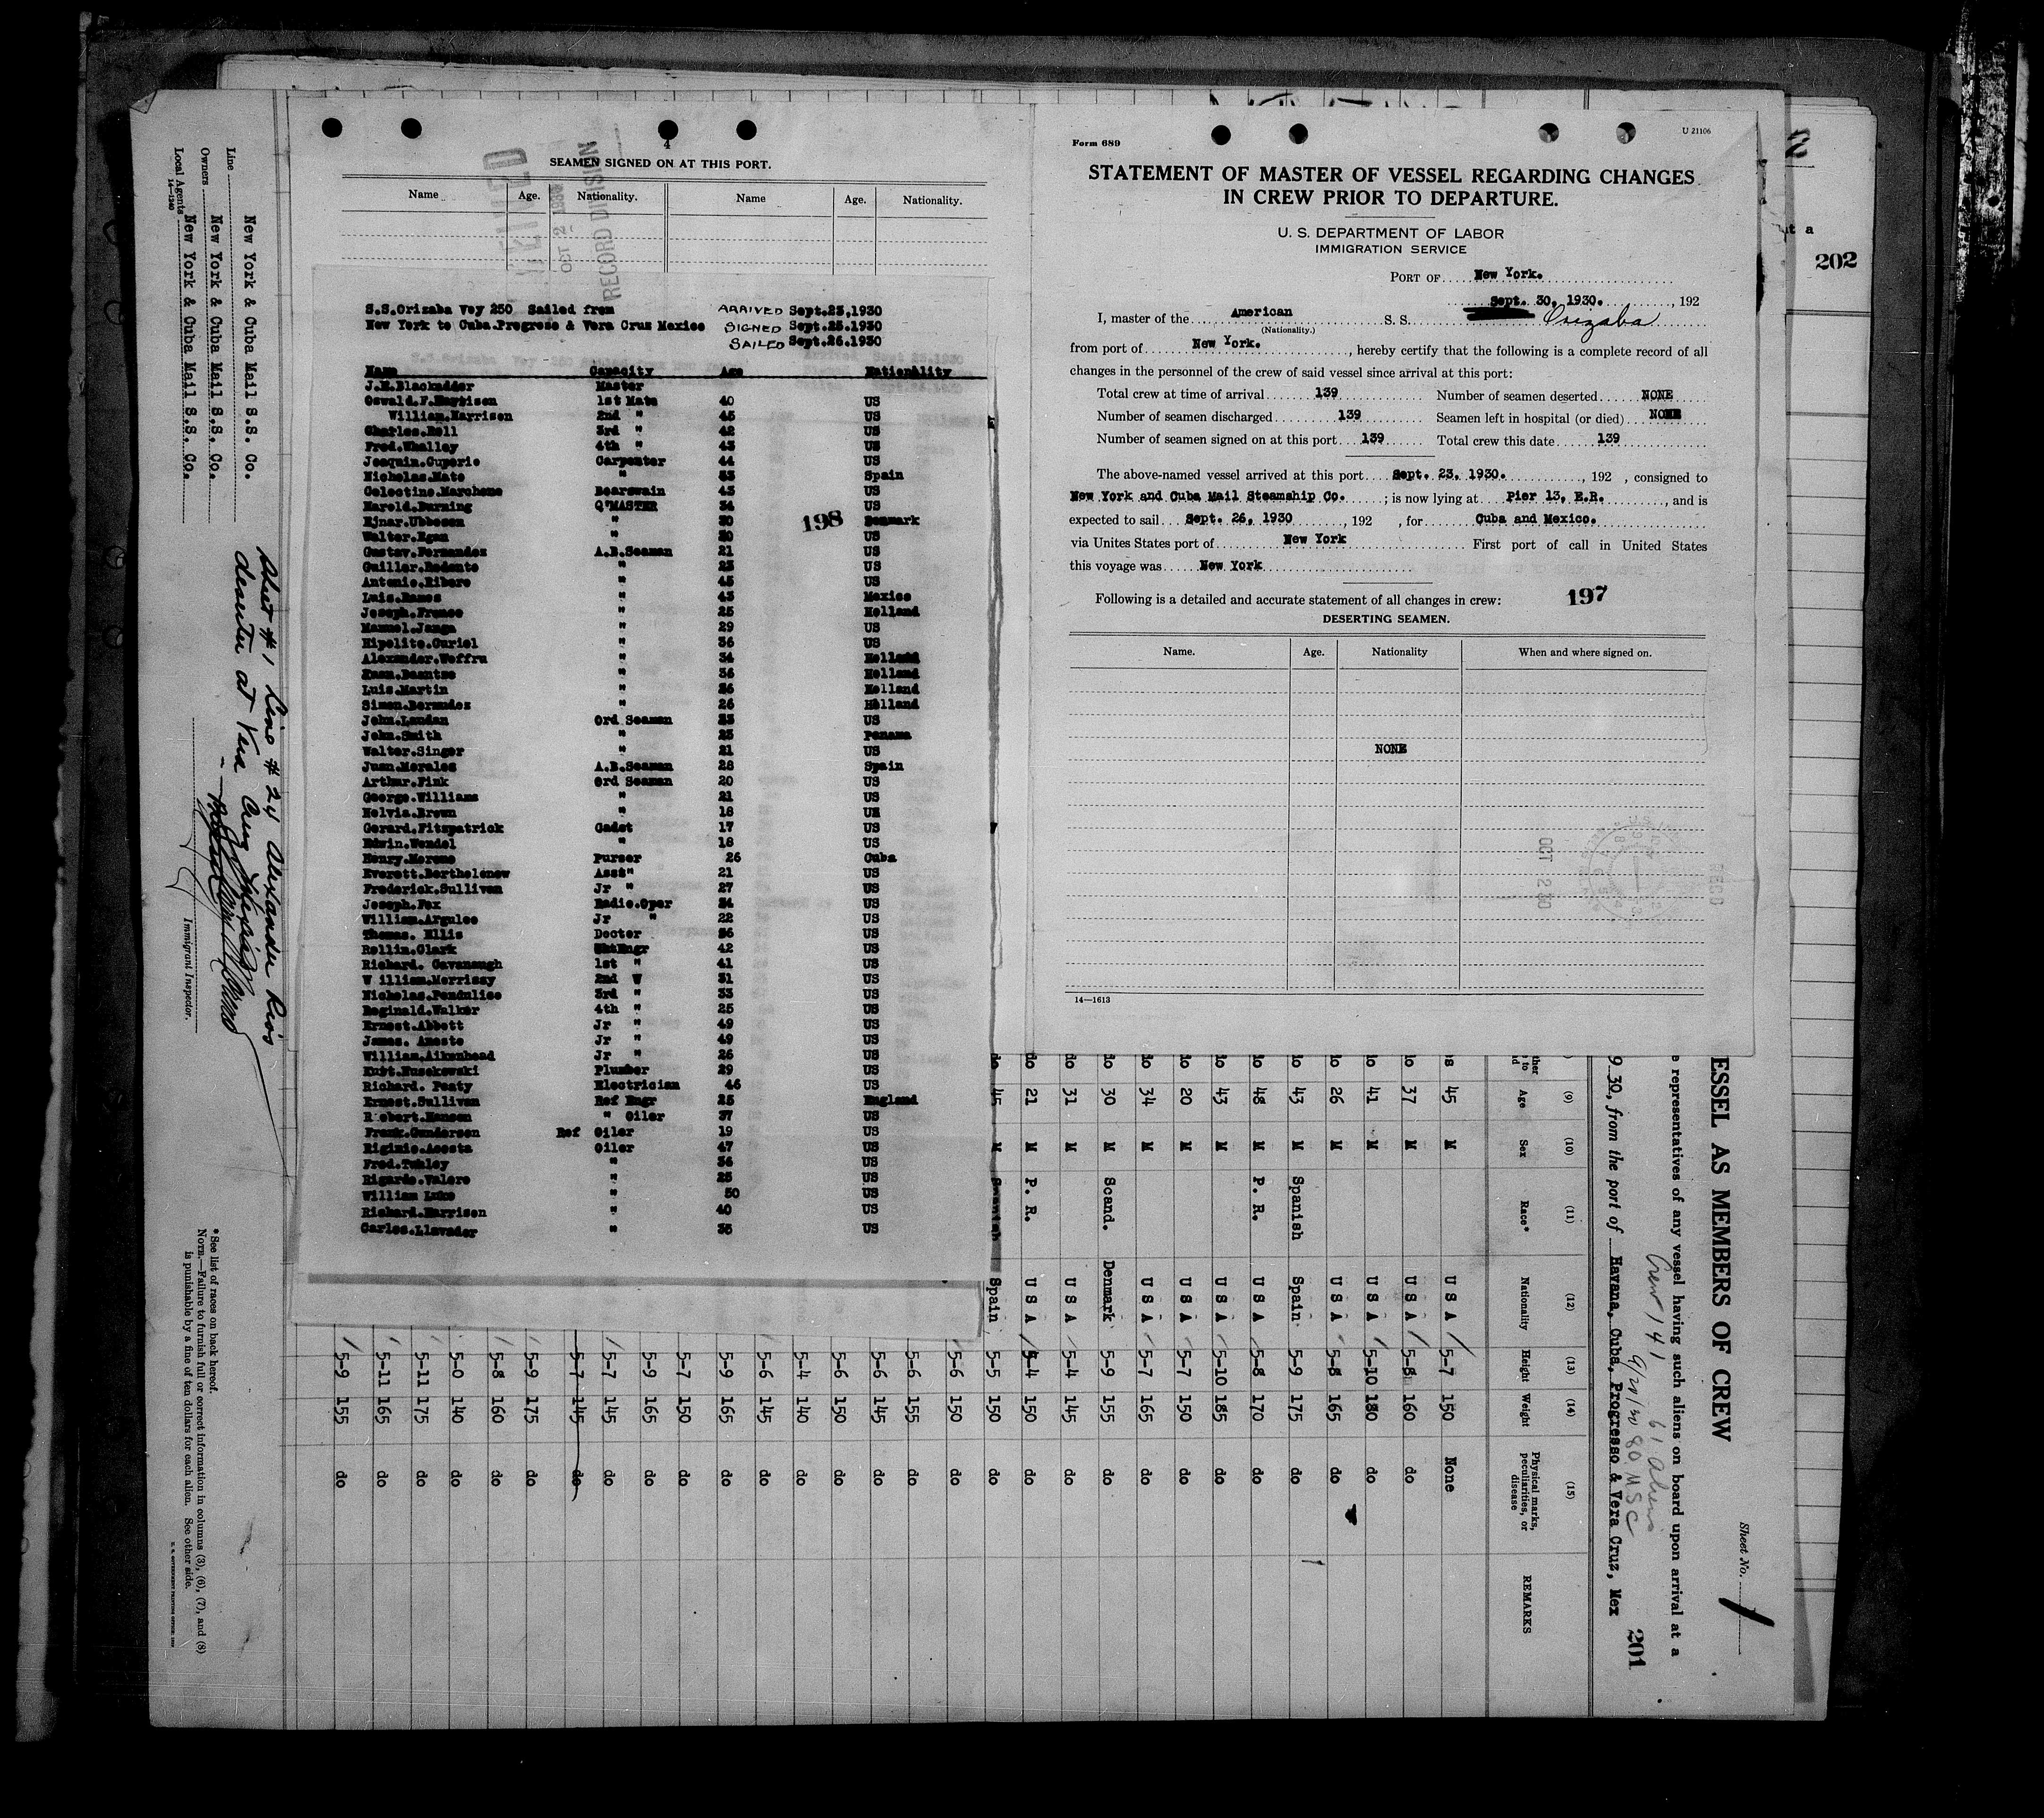 4
SEAMEN SIGNED ON AT THIS PORT.
Name Age. Nationality. Name Age. Nationality.
OCT 2 1930
RECORD DIVISION
S.S.Orizaba Voy 250 Sailed from ARRIVED Sept.23,1930
New York to Cuba.Progreso & Vera Cruz Mexico SIGNED Sept.25.1930
SAILED Sept.26.1930
Name Capacity Age Nationality
J.E.Blackadder Master
Oswald.F. 1st Mate 40 US
William.Harrison 2nd " 45 US
Charles.Bell 3rd " 42 US
Fred.Whalley 4th " 43 US
Joaquin.Cuperic Carpenter 44 US
Nicholas.Mate " 53 Spain
Celestino.Marchene Boatswain 43 US
Harold.Burning Q'MASTER 34 US
Ejnar.Ubbesen " 30 Denmark
198
Walter.Egan " 30 US
Gustav.Fernandez A.B.Seaman 21 US
Guiller.Redonte " 23 US
Antonio.Ribero " 45 US
Luis.Ramos " 43 Mexico
Joseph.France " 25 Holland
Manuel.Janga " 29 US
Hipolito.Curiel " 36 US
Alexander.Woffru " 34 Holland
" 36 Holland
Luis.Martin " 36 Holland
Simon.Bermudez " 26 Holland
John.Landan Ord Seaman 23 US
John.Smith " 23 Panama
Walter.Singer " 21 US
Juan.Morales A.B.Seaman 28 Spain
Arthur.Fink Ord Seaman 20 US
George.Williams " 21 US
Melvin.Brown " 18 US
Gerard.Fitzpatrick Cadet 17 US
Edwin.Wendel " 18 US
Henry.Moreno Purser 26 Cuba
Everett.Bertholonew Asst" 21 US
Frederick.Sullivan Jr " 27 US
Joseph.Fox Radio.Oper 24 US
William.Argulee Jr " 22 US
Thomas. Ellis Doctor 36 US
Rollin.Clark ChtEngr 42 US
Richard. Cavanaugh 1st " 41 US
W illiam.Morrissy 2nd W 31 US
Nicholas.Pendulise 3rd " 33 US
Reginald.Walker 4th " 25 US
Ernest.Abbott Jr " 49 US
James. Aneste Jr " 49 US
William.Aikenhead Jr " 26 US
Kurt.Husekowski Plumber 29 US
Richard. Peaty Electrician 46 US
Ernest.Sullivan Ref Engr 25 England
Robert.Hansen " Oiler 37 US
Frank.Gundersen Ref Oiler 19 US
Higinio.Acosta Oiler 47 US
Fred.Tubley " 36 US
Rigardo.Valero " 25 US
William Luke " 50 US
Richard.Harrison " 40 US
Carlos.Llavader " 35 US
Form 689
U 21106
STATEMENT OF MASTER OF VESSEL REGARDING CHANGES
IN CREW PRIOR TO DEPARTURE.
U. S. DEPARTMENT OF LABOR
IMMIGRATION SERVICE
PORT OF New York.
Sept. 30, 1930. , 192
I, master of the American S. S. Orizaba
(Nationality.)
from port of New York. , hereby certify that the following is a complete record of all
changes in the personnel of the crew of said vessel since arrival at this port:
Total crew at time of arrival 139 Number of seamen deserted NONE
Number of seamen discharged 139 Seamen left in hospital (or died) NONE
Number of seamen signed on at this port 139 Total crew this date 139
The above-named vessel arrived at this port Sept. 23, 1930. , 192 , consigned to
New York and Cuba Mail Steamship Co. ; is now lying at Pier 13, E.R. , and is
expected to sail Sept. 26, 1930 , 192 , for Cuba and Mexico.
via Unites States port of New York First port of call in United States
this voyage was New York
Following is a detailed and accurate statement of all changes in crew: 197
DESERTING SEAMEN.
Name. Age. Nationality When and where signed on.
NONE
OCT 2 30
REC'D
14—1613
202
ESSEL AS MEMBERS OF CREW
Sheet No. 1
e representatives of any vessel having such aliens on board upon arrival at a
Crew 141 61 aliens
9/20/30 80 U S C
9 30, from the port of Havana, Cuba, Progresso & Vera Cruz, Mex
201
(9) (10) (11) (12) (13) (14) (15)
Age Sex Race* Nationality Height Weight Physical marks, peculiarities, or disease REMARKS
45 M U S A 5-7 150 None
do 37 M U S A 5-8 160 do
do 41 M U S A 5-10 180 do
do 26 M U S A 5-8 165 do
do 43 M Spanish Spain 5-9 175 do
do 48 M P. R. U S A 5-8 170 do
do 43 M U S A 5-10 185 do
do 20 M U S A 5-7 150 do
do 34 M U S A 5-7 165 do
do 30 M Scand. Denmark 5-9 155 do
do 31 M U S A 5-4 145 do
do 21 M P. R. U S A 5-4 150 do
do 45 M Spanish Spain 5-5 150 do
5-6 150 do
5-6 155 do
5-6 145 do
5-6 150 do
5-4 140 do
5-6 145 do
5-9 165 do
5-7 150 do
5-9 165 do
5-7 145 do
5-7 145 do
5-9 175 do
5-8 160 do
5-0 140 do
5-11 175 do
5-11 165 do
5-9 155 do
Sheet #1 Line #24 Alexander Rios
deserter at Vera Cruz Mexico
Immigrant Inspector.
Line New York & Cuba Mail S.S. Co.
Owners New York & Cuba Mail S.S. Co.
Local Agents New York & Cuba Mail S.S. Co.
14—1240
* See list of races on back hereof.
NOTE.—Failure to furnish full or correct information in columns (3), (6), (7), and (8)
is punishable by a fine of ten dollars for each alien. See other side.